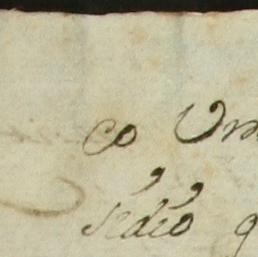 co Um
sedió q